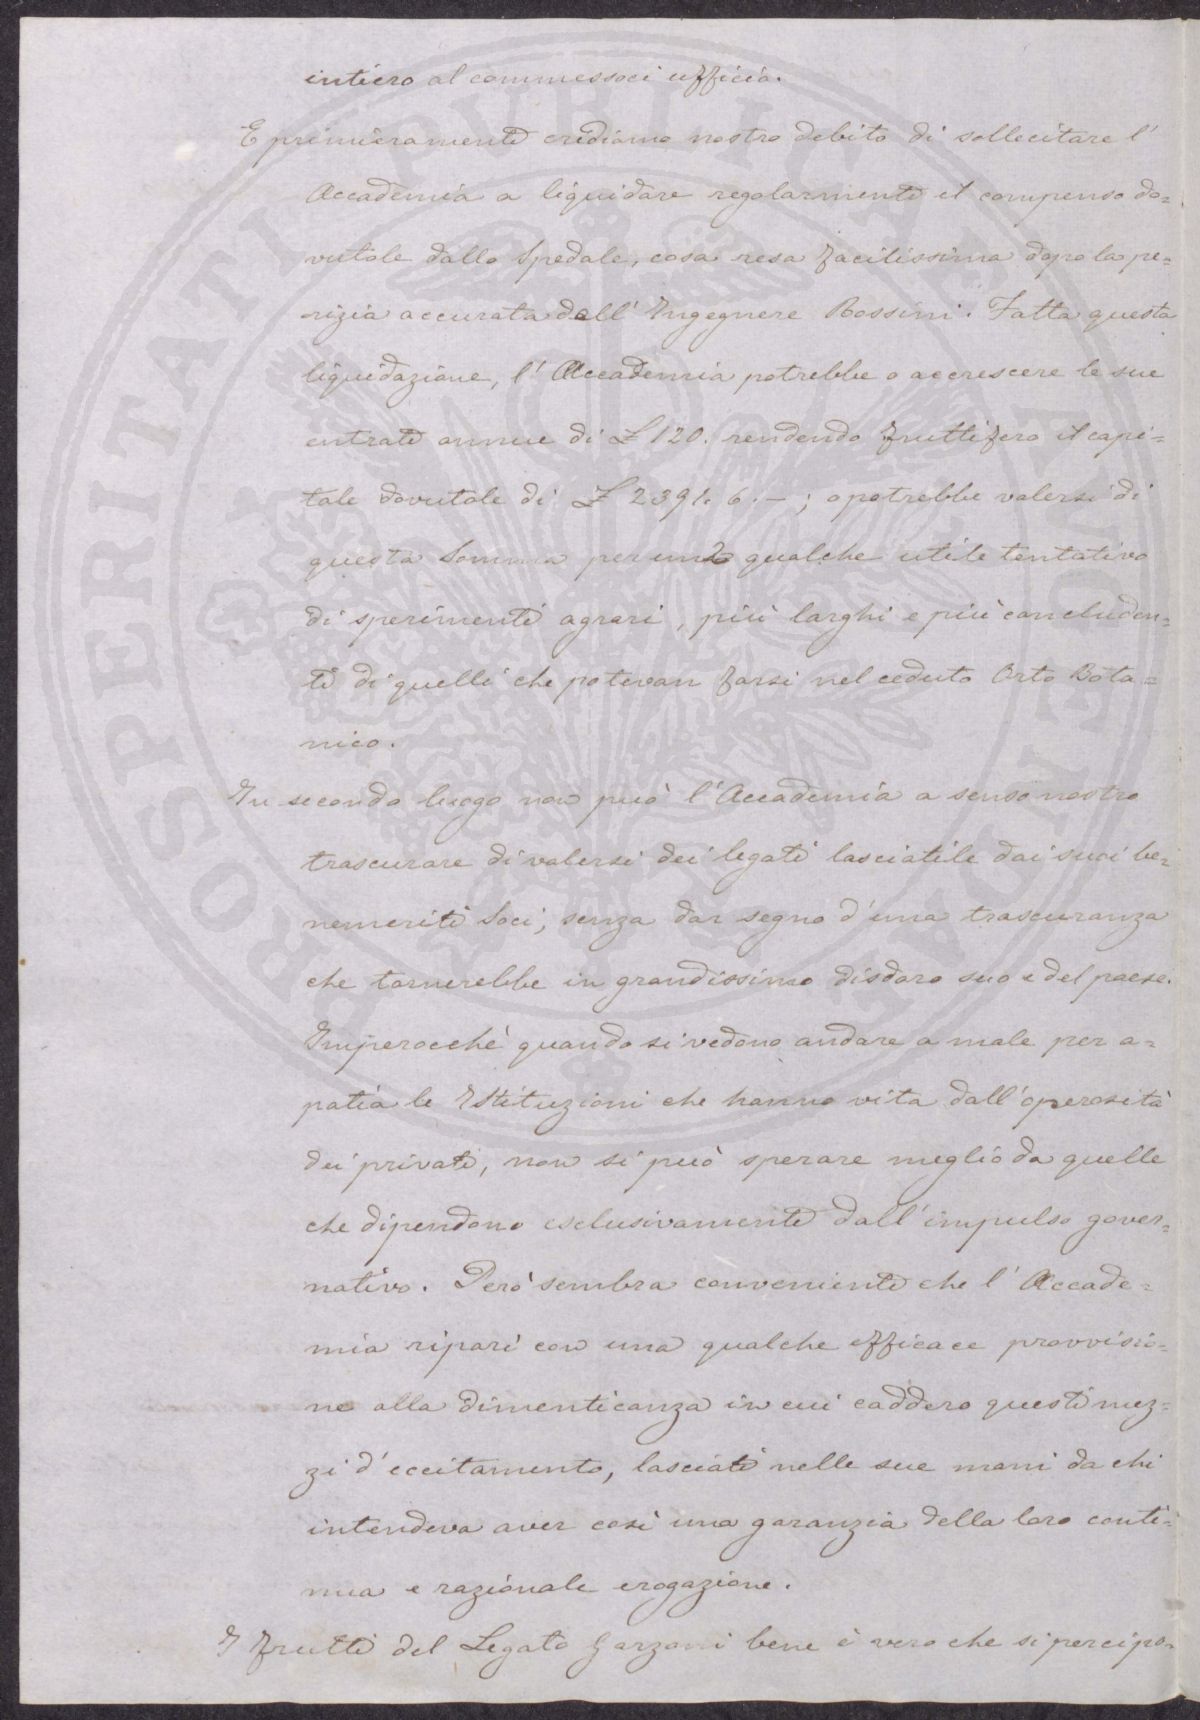 intiero al commessoci ufficio.
E primieramente crediamo nostro debito di sollecitare l'
Accademia a liquidare regolarmente il compenso do=
vutole dallo Spedale, cosa resa facilissima dopo la pe=
rizia accurata dell' Ingegnere Rossini. Fatta questa
liquidazione, l' Accademia potrebbe o accrescere le sue
entrate annue di £ 120. rendendo fruttifero il capi=
tale dovutole di £ 2391. 6. —; o potrebbe valersi di
questa Somma per un qualche utile tentativo
di sperimenti agrari, più larghi e più concluden=
ti di quelli che potevan farsi nel ceduto Orto Bota=
nico.
In secondo luogo non può l'Accademia a senso nostro
trascurare di valersi dei legati lasciatile dai suoi be=
nemeriti Soci, senza dar segno d'una trascuranza
che tornerebbe in grandissimo disdoro suo e del paese.
Imperocchè quando si vedono andare a male per a=
patia le Istituzioni che hanno vita dall'operosità
dei privati, non si può sperare meglio da quelle
che dipendono esclusivamente dall'impulso gover=
nativo. Però sembra conveniente che l' Accade=
mia ripari con una qualche efficace provvisio=
ne alla dimenticanza in cui caddero questi mez=
zi d'eccitamento, lasciati nelle sue mani da chi
intendeva aver così una garanzia della loro conti=
nua e razionale erogazione.
I frutti del Legato Garzoni bene è vero che si percipo=
PROSPERITATI PUBLICAE AUGENDAE